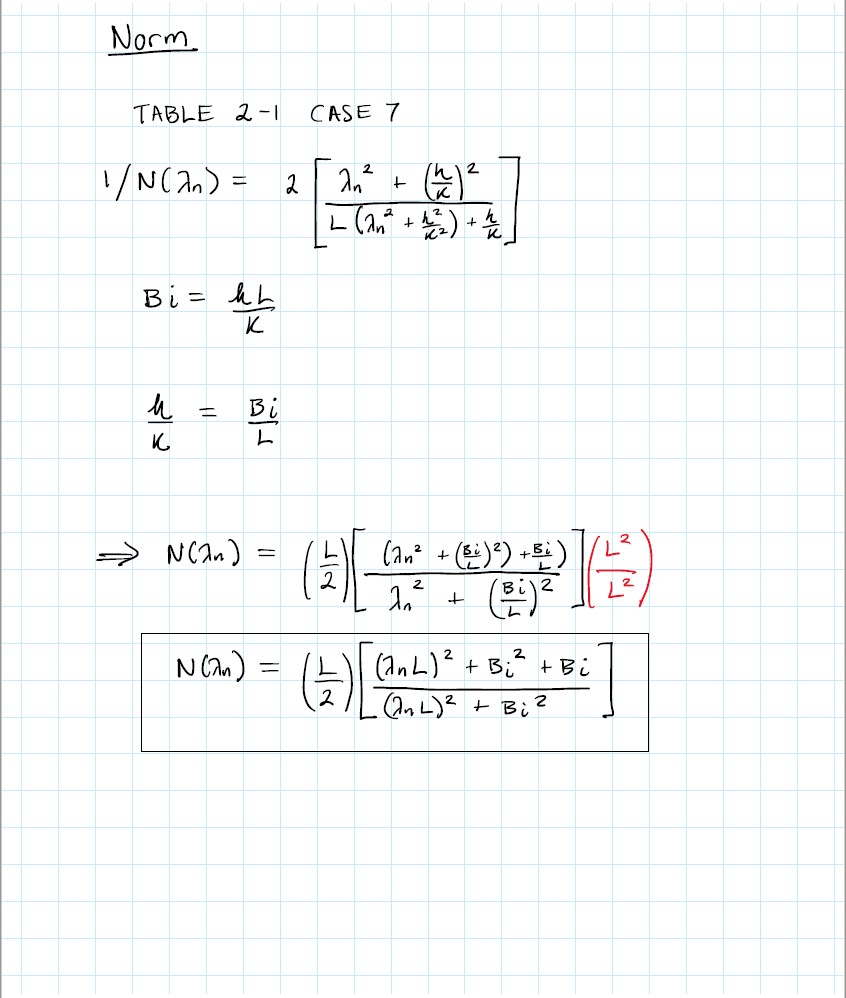 Norm
TABLE 2-1 CASE 7
1/N(λn) = 2 [ (λn² + (h/K)²) / (L(λn² + h²/K²) + h/K) ]
Bi = hL/K
h/K = Bi/L
⇒ N(λn) = (L/2) [ (λn² + (Bi/L)²) + Bi/L) / (λn² + (Bi/L)²) ] (L²/L²)
N(λn) = (L/2) [ ((λnL)² + Bi² + Bi) / ((λnL)² + Bi²) ]